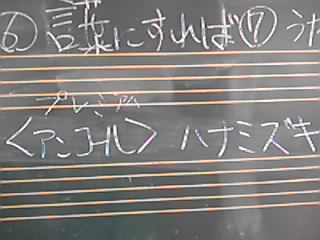 ⑥言葉にすれば⑦うた
プレミアム
<アンコール> ハナミズキ